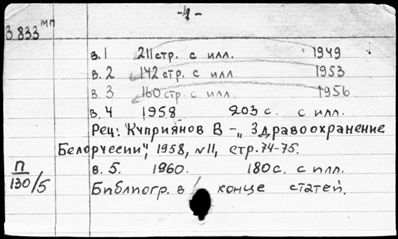 -4-
3.833 мп
в.1 211 стр. с илл. 1949
в.2 142 стр. с илл. 1953
в.3 160 стр. с илл. 1956
в.4 1958 203 с. с илл.
Рец: Куприянов В -„ Здравоохранение
Белоруссии", 1958, №11, стр. 74-75.
П
130/5
в.5. 1960. 180 с. с илл.
Библиогр. в конце статей.